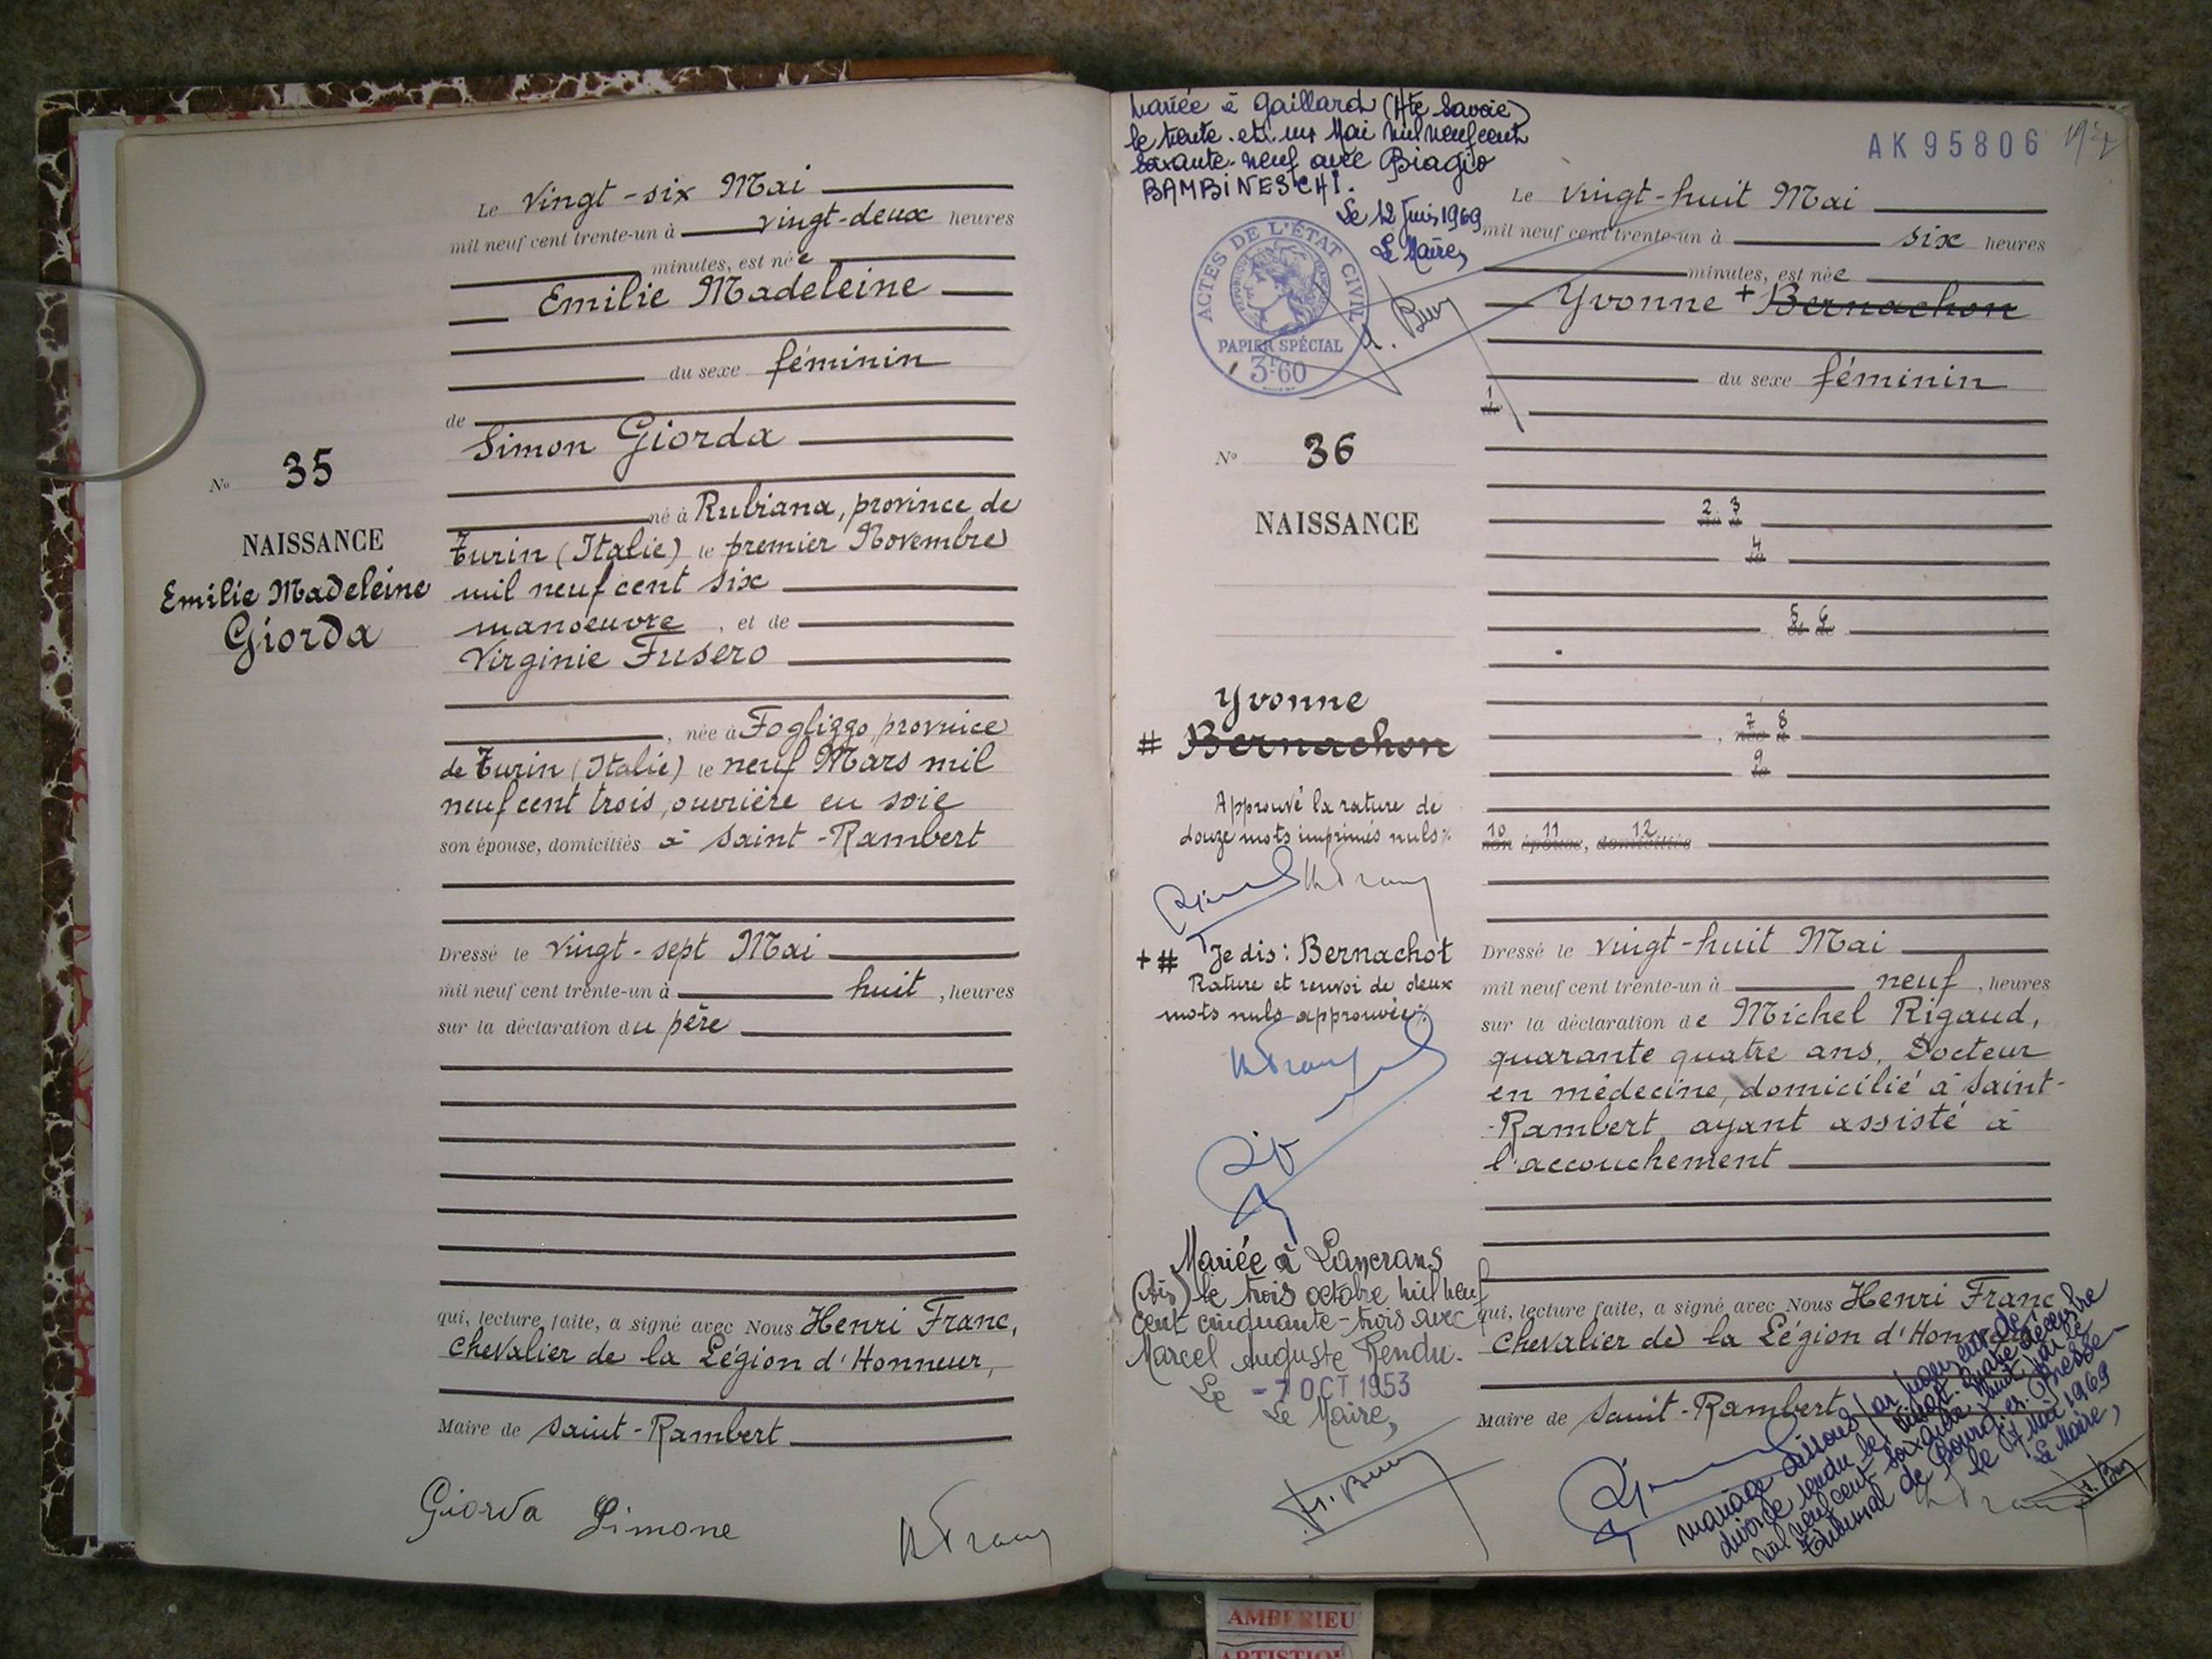 Le vingt-six Mai
mil neuf cent trente-un à vingt-deux heures
minutes, est née
Emilie Madeleine
du sexe féminin
de
Simon Giorda
né à Rubiana, province de
Turin (Italie) le premier Novembre
mil neuf cent six
manoeuvre, et de
Virginie Fusero
, née à Foglizzo, province
de Turin (Italie) le neuf Mars mil
neuf cent trois, ouvrière en soie
son épouse, domiciliés à Saint-Rambert
Dressé le vingt-sept Mai
mil neuf cent trente-un à huit, heures
sur la déclaration du père
qui, lecture faite, a signé avec Nous Henri Franc,
Chevalier de la Légion d'Honneur,
Maire de Saint-Rambert
Giorda Simone
No 35
NAISSANCE
Emilie Madeleine
Giorda
Mariée à Gaillard (Hte Savoie)
le trente-et-un Mai mil neuf cent
soixante-neuf avec Biagio
BAMBINESCHI.
Le 12 Juin 1969
Le Maire,
ACTES DE L'ÉTAT CIVIL
RÉPUBLIQUE FRANÇAISE
PAPIER SPÉCIAL
3F60
No 36
NAISSANCE
Yvonne
# Bernachon
Approuvé la rature de
douze mots imprimés nuls
+ # Je dis: Bernachot
Rature et renvoi de deux
mots nuls approuvés
Mariée à Lancrans
(Ain) le trois octobre mil neuf
cent cinquante-trois avec
Marcel Auguste Rendu.
Le - 7 OCT 1953
Le Maire,
AK 95806
Le vingt-huit Mai
mil neuf cent trente-un à six heures
minutes, est née
Yvonne + Bernachon
du sexe féminin
1
2 3
4
5 6
7 8
née à
9
10 11 12
son épouse, domiciliés
Dressé le vingt-huit Mai
mil neuf cent trente-un à neuf, heures
sur la déclaration de Michel Rigaud,
quarante quatre ans, Docteur
en médecine, domicilié à Saint-
-Rambert, ayant assisté à
l'accouchement
qui, lecture faite, a signé avec Nous Henri Franc
Chevalier de la Légion d'Honneur
Maire de Saint-Rambert
Mariage dissous par jugement de
divorce rendu le vingt-quatre décembre
mil neuf cent soixante huit par le
Tribunal de Bourg-en-Bresse
le 17 Mai 1969
Le Maire,
AMBERIEU